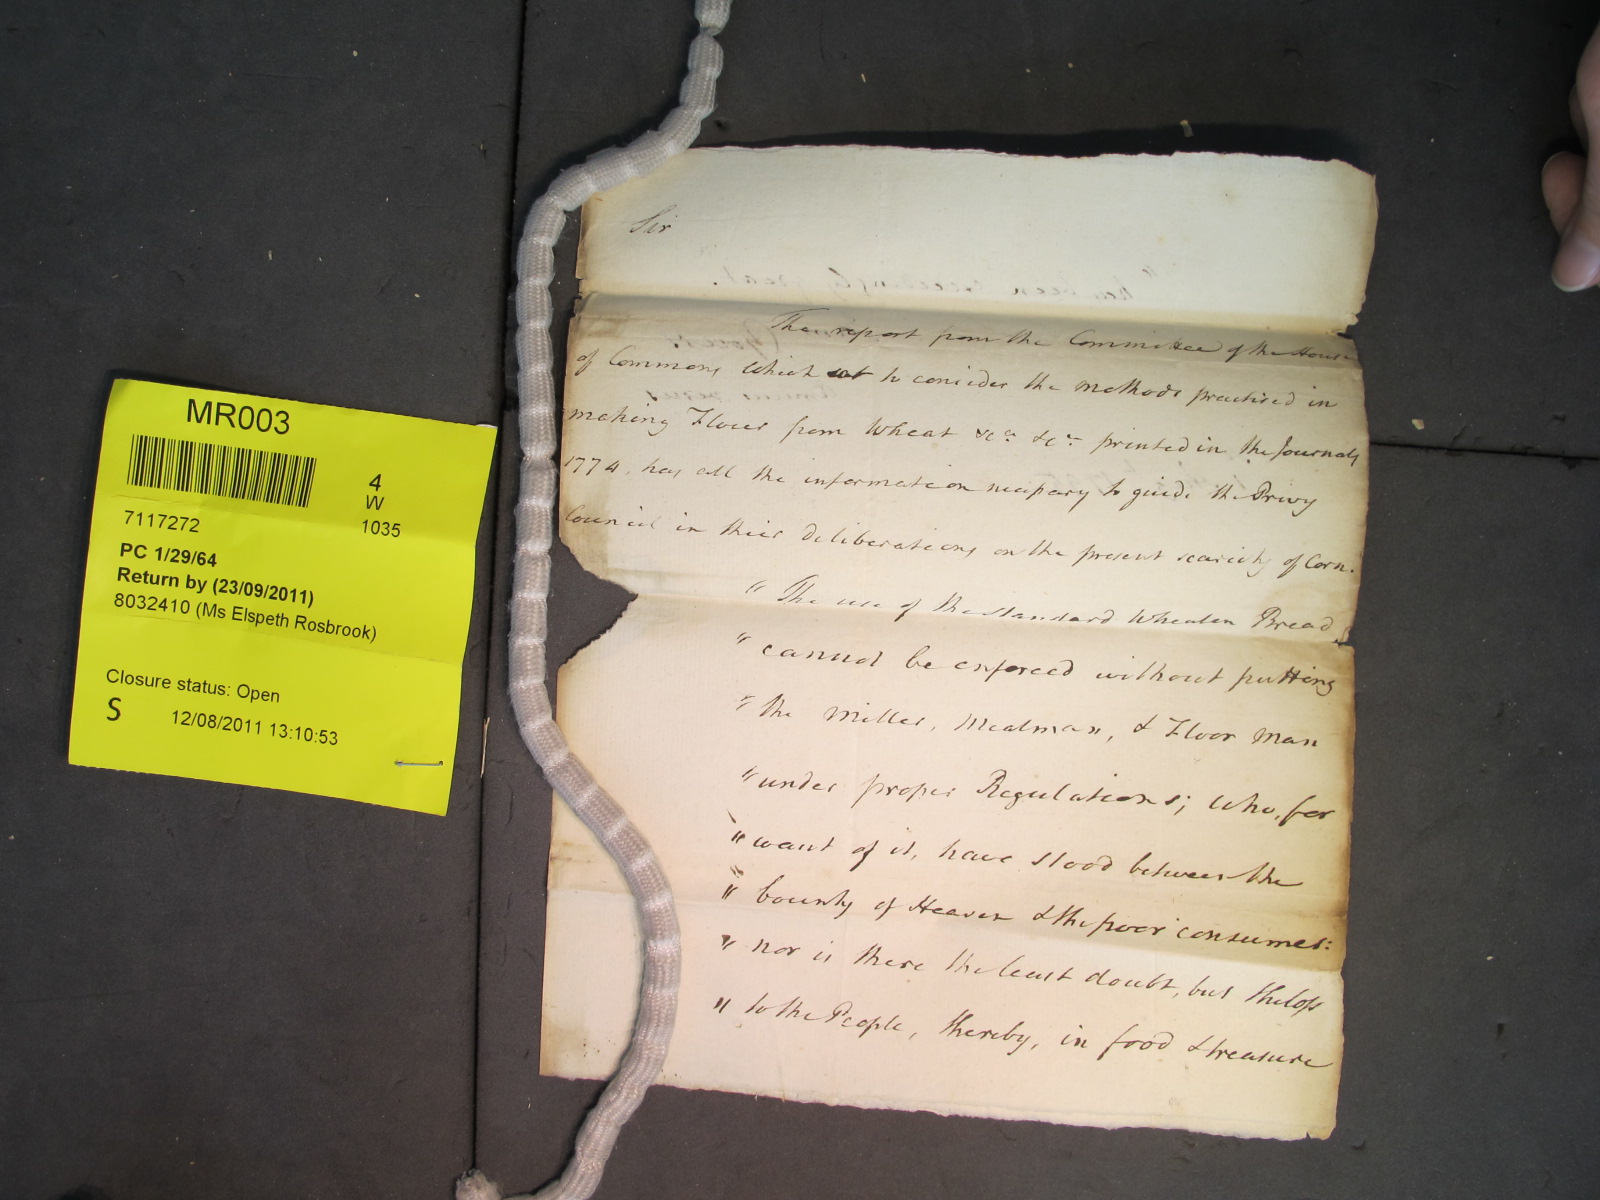 MR003
4
W
7117272 1035
PC 1/29/64
Return by (23/09/2011)
8032410 (Ms Elspeth Rosbrook)
Closure status: Open
S 12/08/2011 13:10:53
Sir
The report from the Committee of the House
of Commons which sat to consider the methods practised in
making Flour from Wheat &ca &ca printed in the Journals
1774, has all the information necessary to guide the Privy
Council in their deliberations on the present scarcity of Corn.
" The use of the standard Wheaten Bread,
" cannot be enforced without putting
" the Miller, Mealman, & Floor Man
" under proper Regulations; who, for
" want of it, have stood between the
" bounty of Heaven & the poor consumer:
" nor is there the least doubt, but the loss
" to the People, thereby, in food & treasure
" has been exceedingly great.